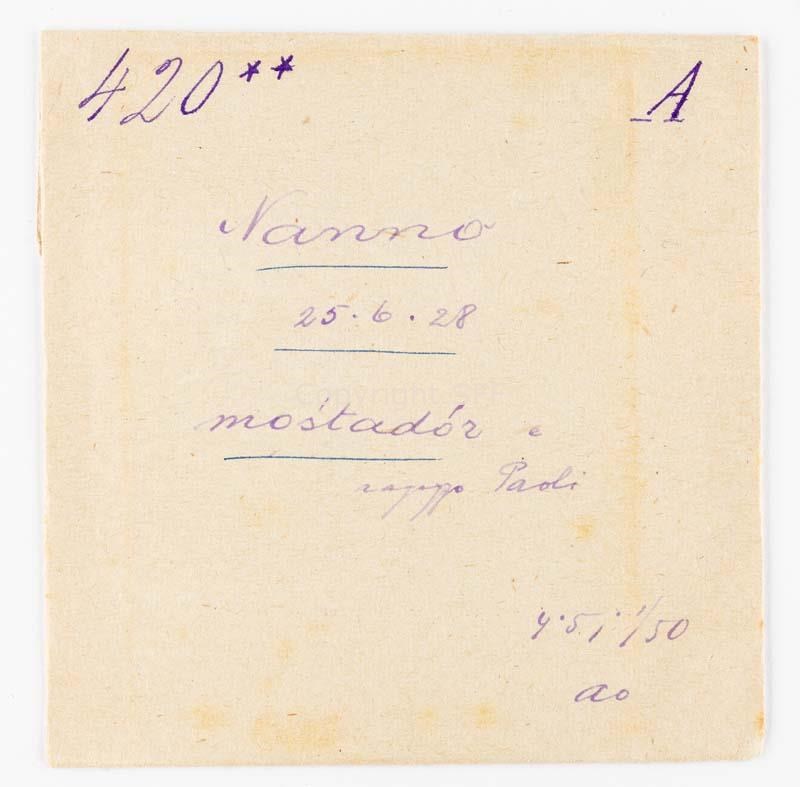 420** A
Nanno
25.6.28
mośtadór e
ragazzo Paoli
4.5; 1/50
ao